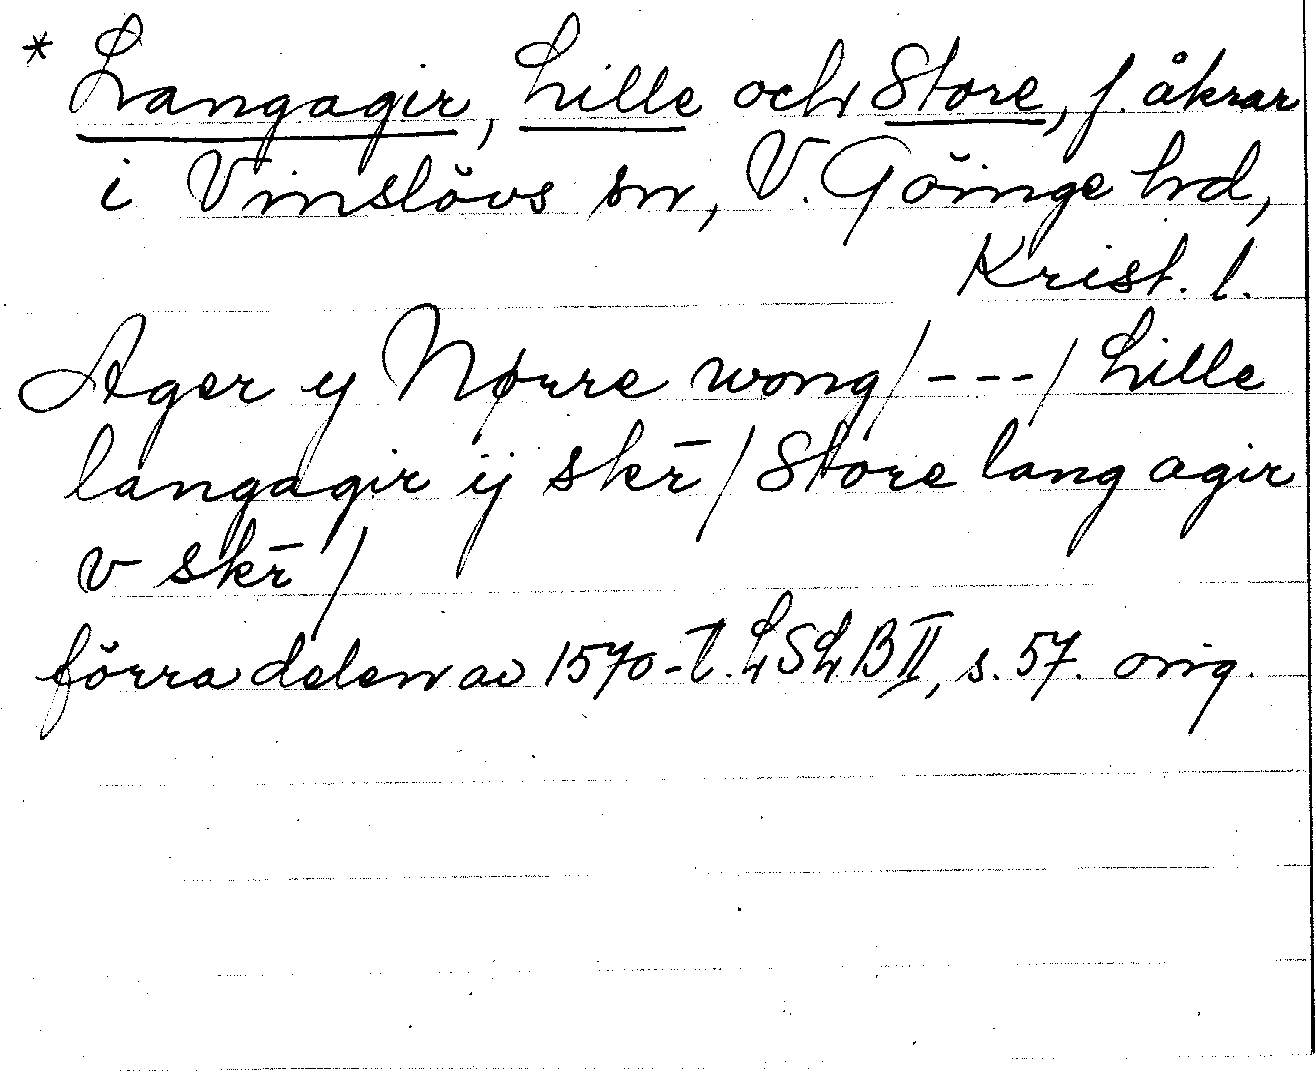 * Langagir, Lille och Store, f. åkrar
i Vinslövs sn, V. Göinge hd,
Krist. l.
Ager y Nørre wong / - - - / Lille
langagir ij skr̄ / Store lang agir
v skr̄ /
förra delen av 1570-t. LSLB II, s. 57. orig.